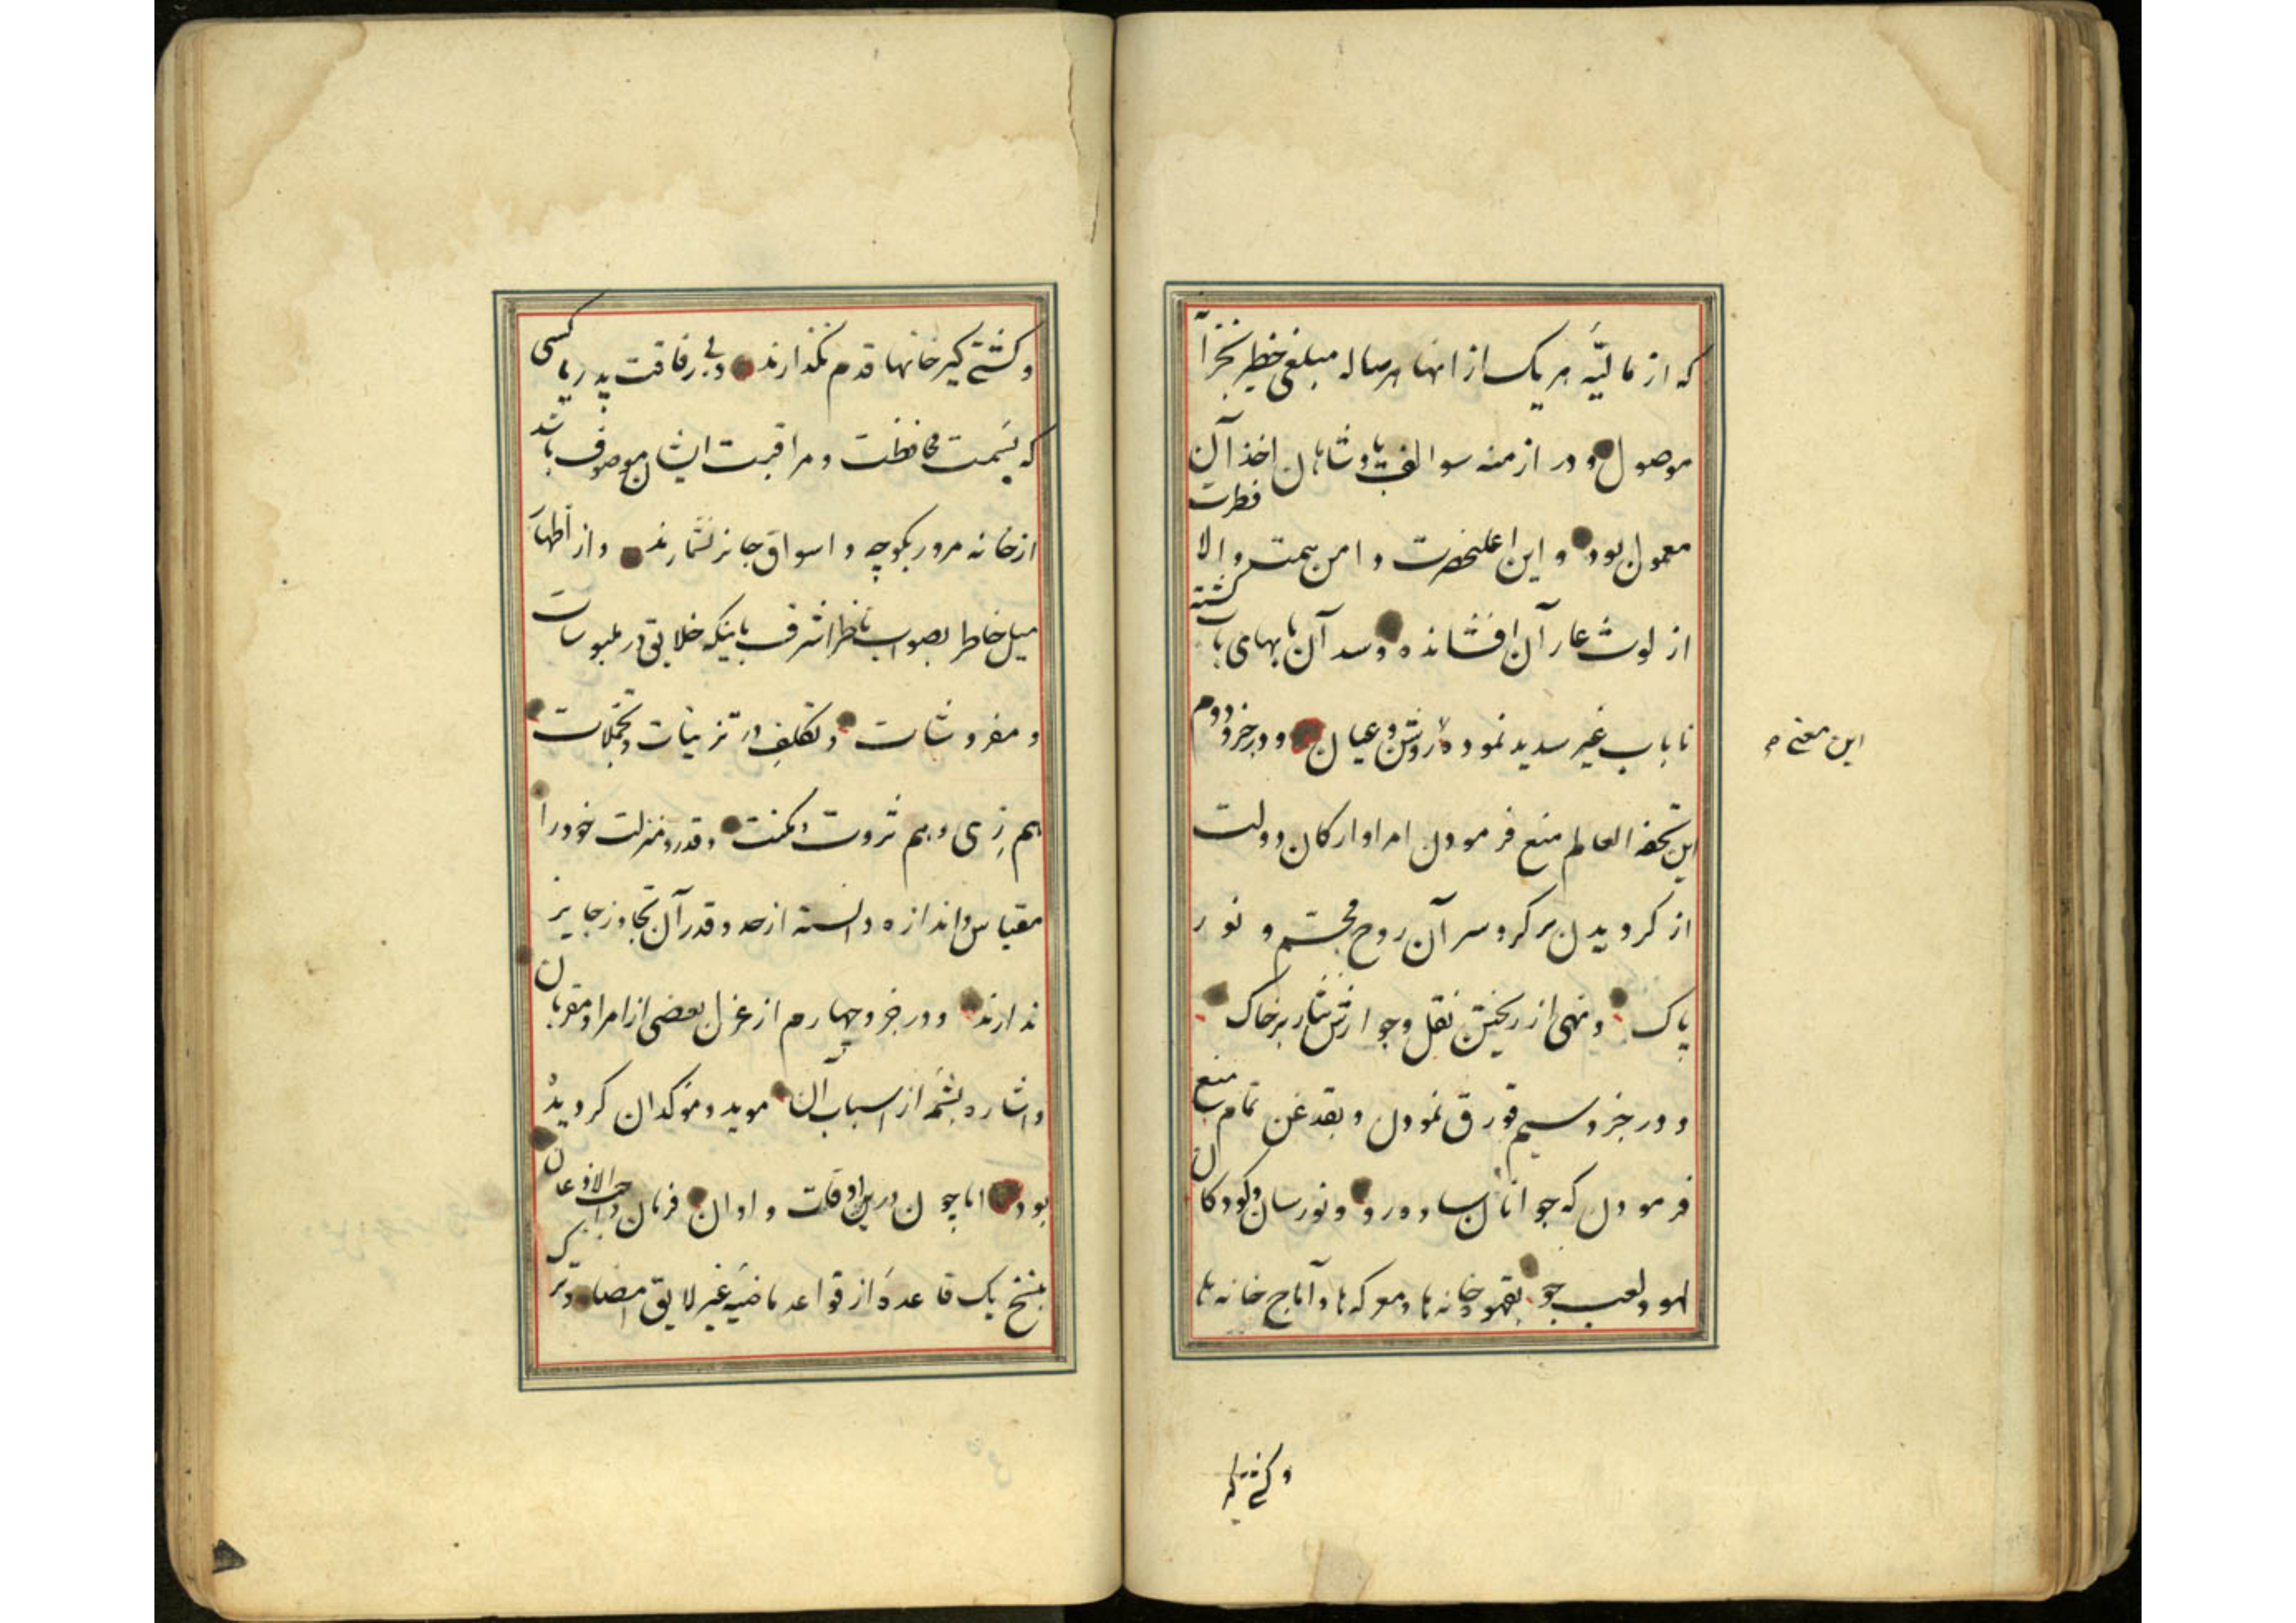 که از مالیّه هر یک از انها هر ساله مبلغی خطیر بخزا
موصول و در ازمنه سوالف پادشاهان اخذ آن
معمول بود و این اعلیحضرت و امن همت والا فطرت
از لوث عار آن افشانده و سد آن بابهای با گشته
ناباب غیر سدید نموده روشن و عیان و در جزو دوم
این معنی
این تحفه العالم منع فرمودن امرا و ارکان دولت
از کرویدن بر کرد سر آن روح مجسّم و نور
پاک و نهی از ریختن نقل و جوارش نثار بر خاک
و در جزو سیم قورق نمودن و بقدغن تمام منع
فرمودن که جوانان ساده رو و نورسان و کودکان
لهو و لعب جو بقهوه خانه ها و معرکه ها و آماج خانه ها
و کشتی گیر
و کشتی گیر خانها قدم نگذارند و بی رفاقت پدر یا کسی
که بسمت محافظت و مراقبت ایشان موصوف باشد
از خانه مرور بکوچه و اسواق جایز نشمارند و از اظهار
میل خاطر بصواب ناظر اشرف باینکه خلایق در ملبوسات
و مفروشات و تکلف در تزیینات و تجملات
هم زی و هم ثروت و مکنت و قدر و منزلت خود را
مقیاس و اندازه دانسته از حد و قدر آن تجاوز جایز
ندارند و در جزو چهارم از عزل بعضی از امرا و مقربان
و اشاره بشمّه از اسباب آن موید و موکد ان کردیده
بود اما چون درین اوقات و اوان فرمان واجب الاذعان
بنسخ یک قاعدهٔ از قواعد ماضیه غیر لایق امضا و ترک